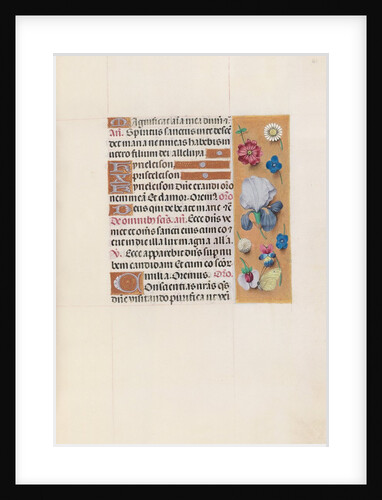 Magnificat aīa mea dnm̄ &
An̄. Spiritus sanctus in te descē
det maria ne timeas habebis in
utero filium dei alleluya.
Kyrieleison.
Xp̄isteleison.
Kyrieleison. Dn̄e exaudi or̄o
nem meā. Et clamor. Orem. Or̄o
Deus qui de beate marie &c̄
De omnibus scīs. an̄. Ecce dn̄s ve
niet et om̄s sancti eius cum eo &
erit in die illa lux magna alla.
V. Ecce apparebit dn̄s sup nu
bem candidam Et cum eo scōr
milia. Oremus. Or̄o.
Conscientias nr̄as qs̄
dn̄e visitando purifica ut veī